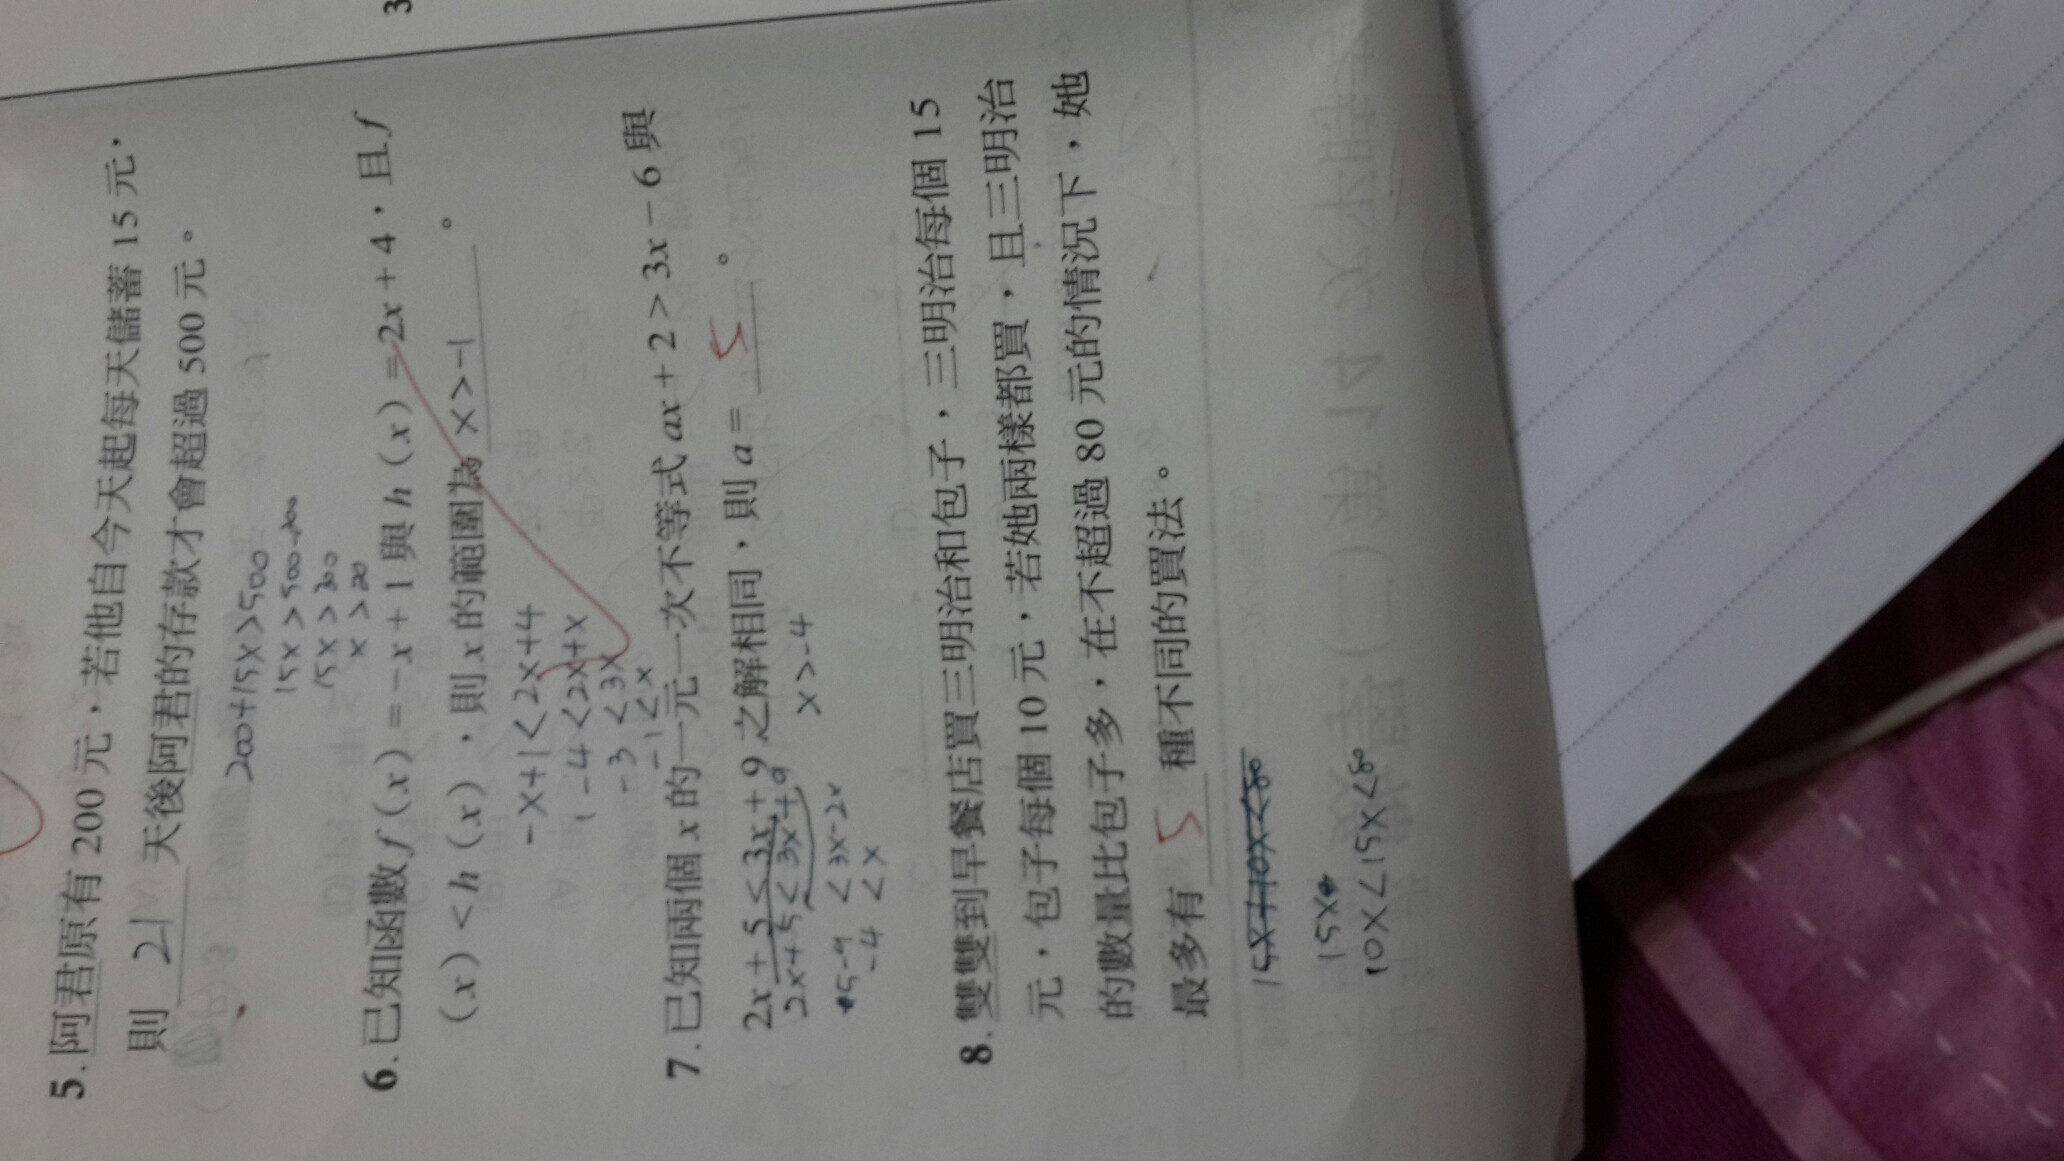 3
5.阿君原有 200 元，若他自今天起每天儲蓄 15 元，
則 21 天後阿君的存款才會超過 500 元。
200+15x>500
15x>500-200
15x>300
x>20
6.已知函數 f(x)=-x+1 與 h(x)=2x+4，且 f
(x)<h(x)，則 x 的範圍為 x>-1 。
-x+1<2x+4
1-4<2x+x
-3<3x
-1<x
7.已知兩個 x 的一元一次不等式 ax+2>3x-6 與
2x+5<3x+9 之解相同，則 a= 5 。
2x+5<3x+9
x>-4
5-9<3x-2x
-4<x
8.雙雙到早餐店買三明治和包子，三明治每個 15
元，包子每個 10 元，若她兩樣都買，且三明治
的數量比包子多，在不超過 80 元的情況下，她
最多有 5 種不同的買法。
15x+10x<80
15x
10x<15x<80